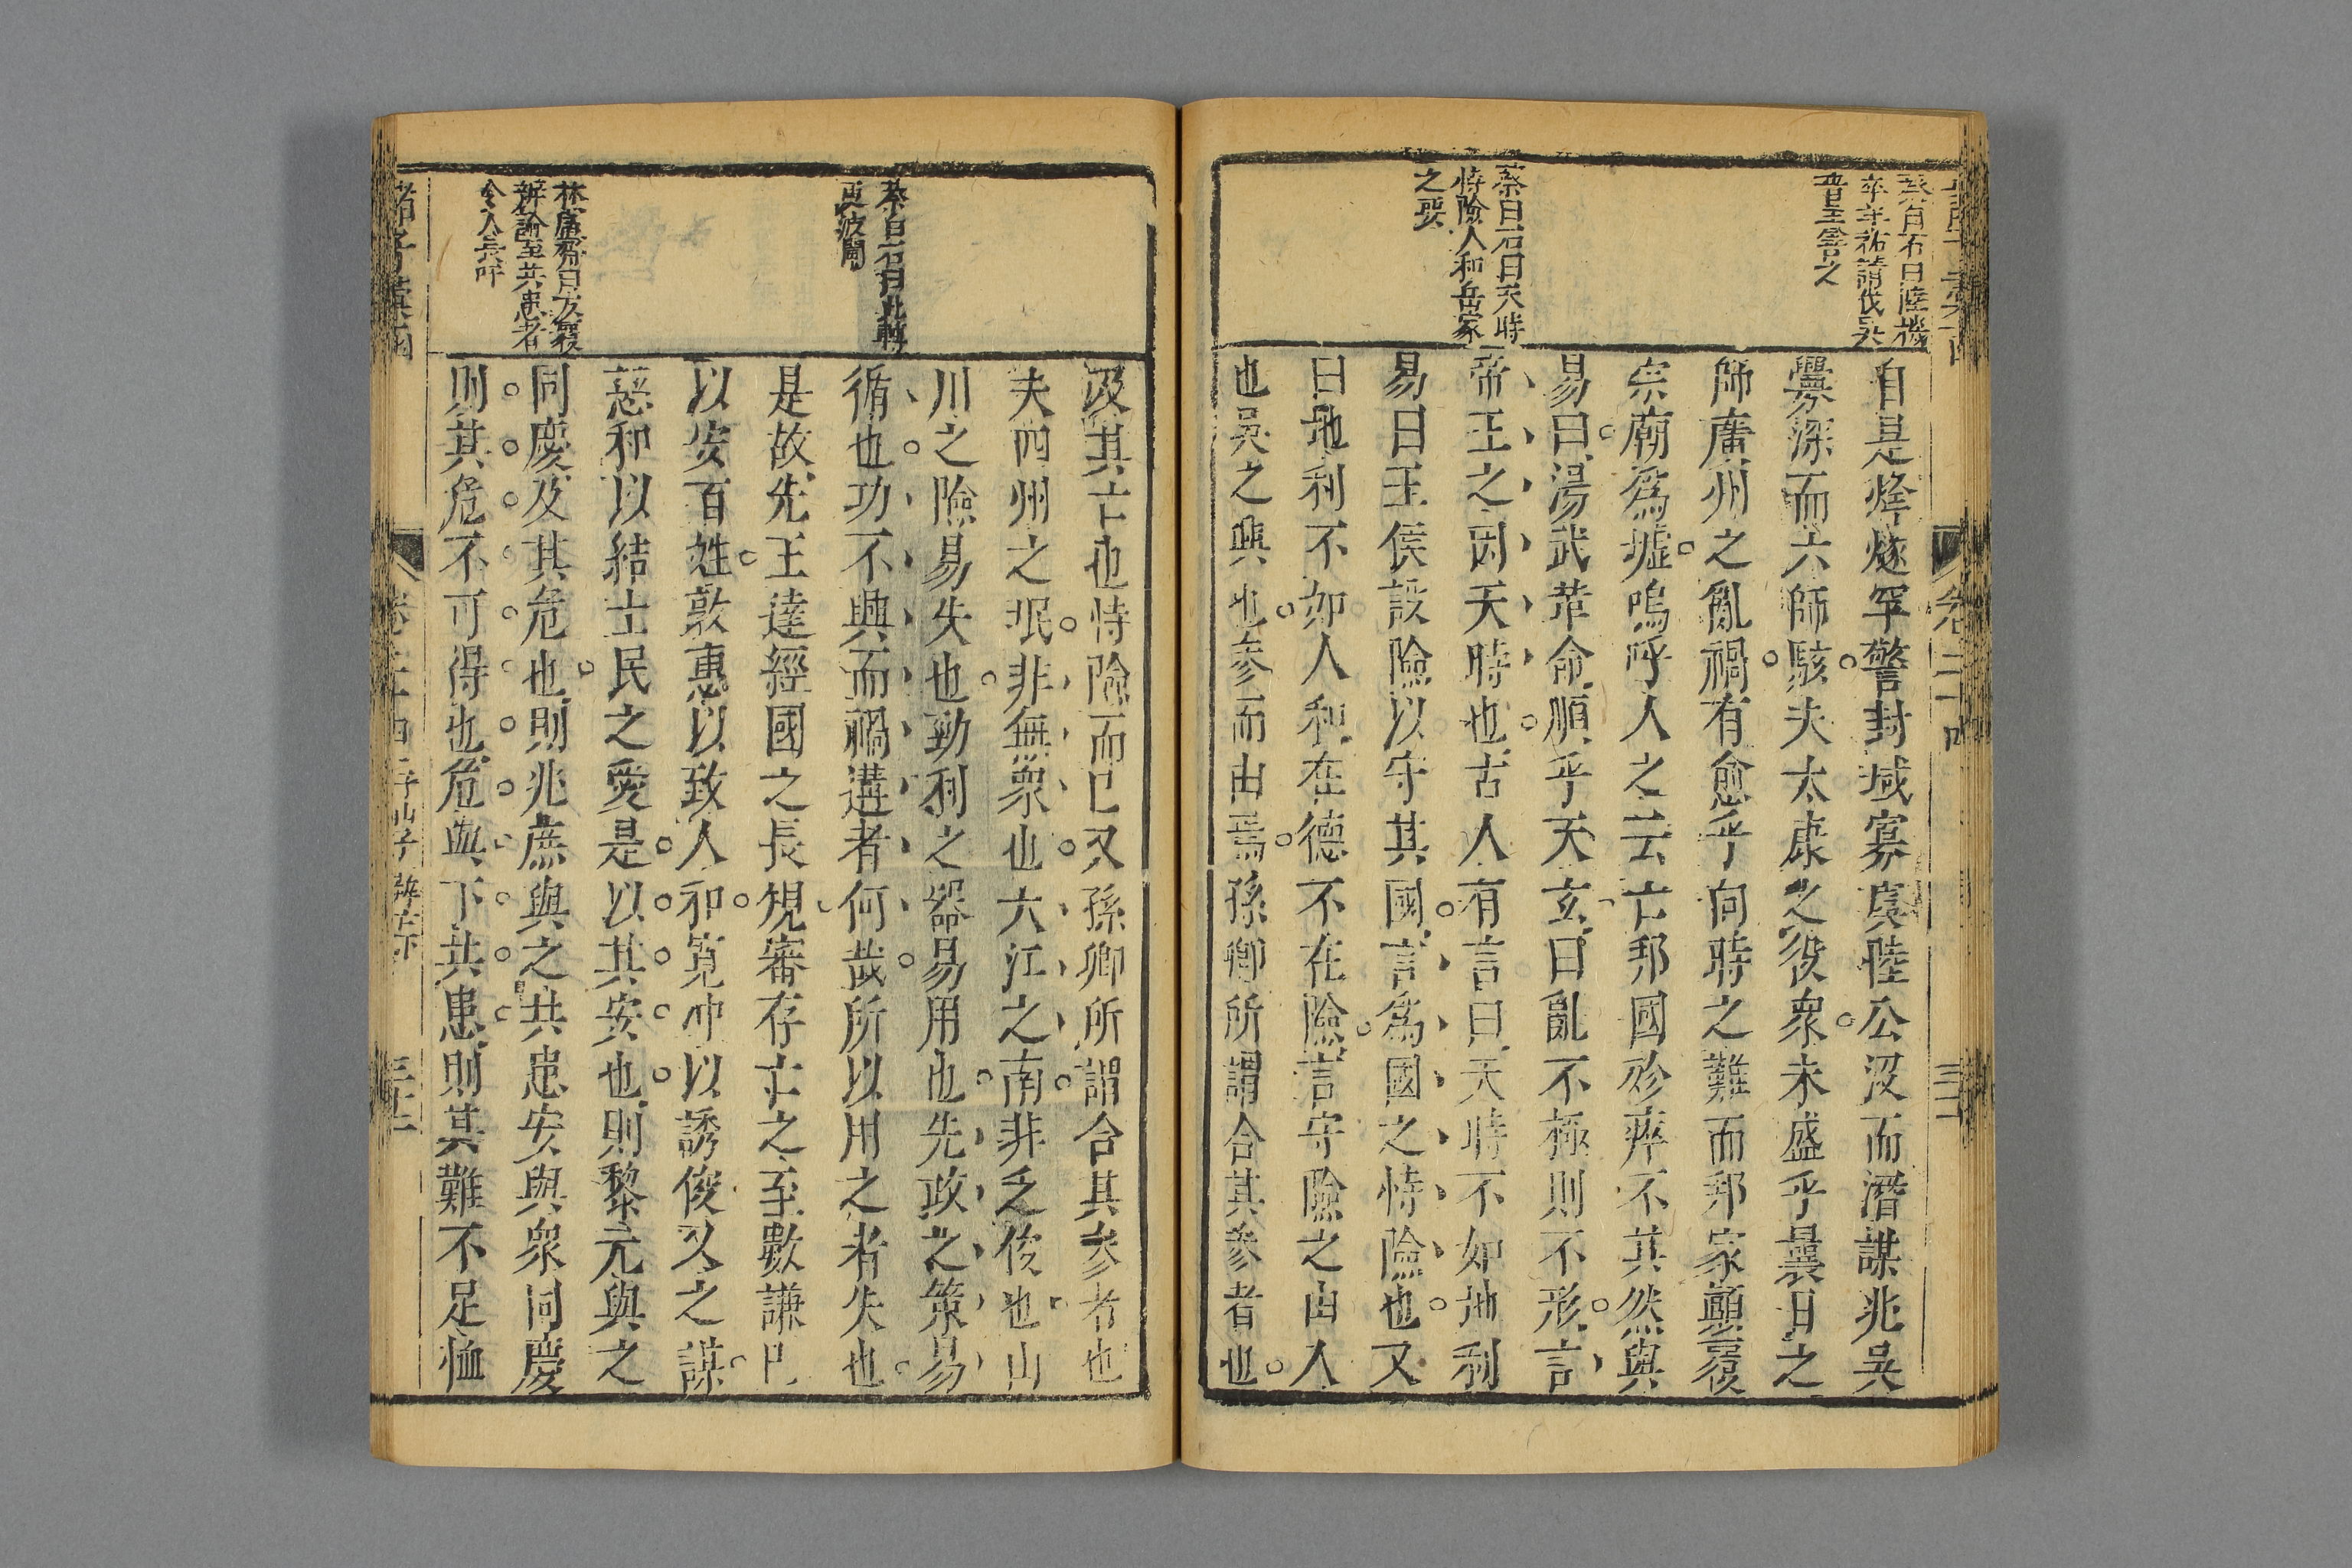 蔡白石曰陸機
卒羊祜請伐吳
晉主善之
自是烽燧罕警封域寡虞陸公沒而潛謀兆吳
釁深而六師駭夫太康之役衆未盛乎曩日之
師廣州之亂禍有愈乎向時之難而邦家顛覆
宗廟爲墟嗚呼人之云亡邦國殄瘁不其然與
易曰湯武革命順乎天玄曰亂不極則不形言
蔡白石曰天時
恃險人和岳家
之要
帝王之因天時也古人有言曰天時不如地利
易曰王侯設險以守其國言爲國之恃險也又
曰地利不如人和在德不在險言守險之由人
也吳之興也參而由焉孫卿所謂合其參者也
及其亡也恃險而已又孫卿所謂合其參者也
夫四州之氓非無衆也大江之南非乏俊也山
川之險易失也勁利之器易用也先政之策易
蔡白石曰此轉
更波闌
循也功不興而禍遘者何哉所以用之者失也
是故先王達經國之長規審存亡之至數謙巳
以安百姓敦惠以致人和寬冲以誘俊乂之謀
慈和以結士民之愛是以其安也則黎元與之
林廣
辨論至共患者
令人長吁
同慶及其危也則兆庶與之共患安與衆同慶
則其危不可得也危與下共患則其難不足恤
諸子彙函
卷二十四
辨亡下
三十二